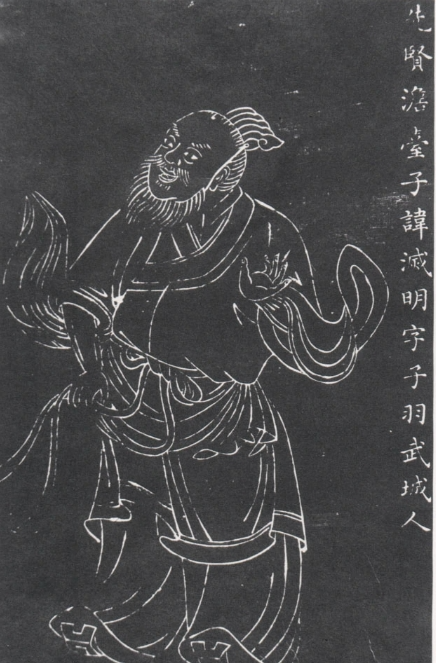 先賢澹臺子諱滅明字子羽武城人